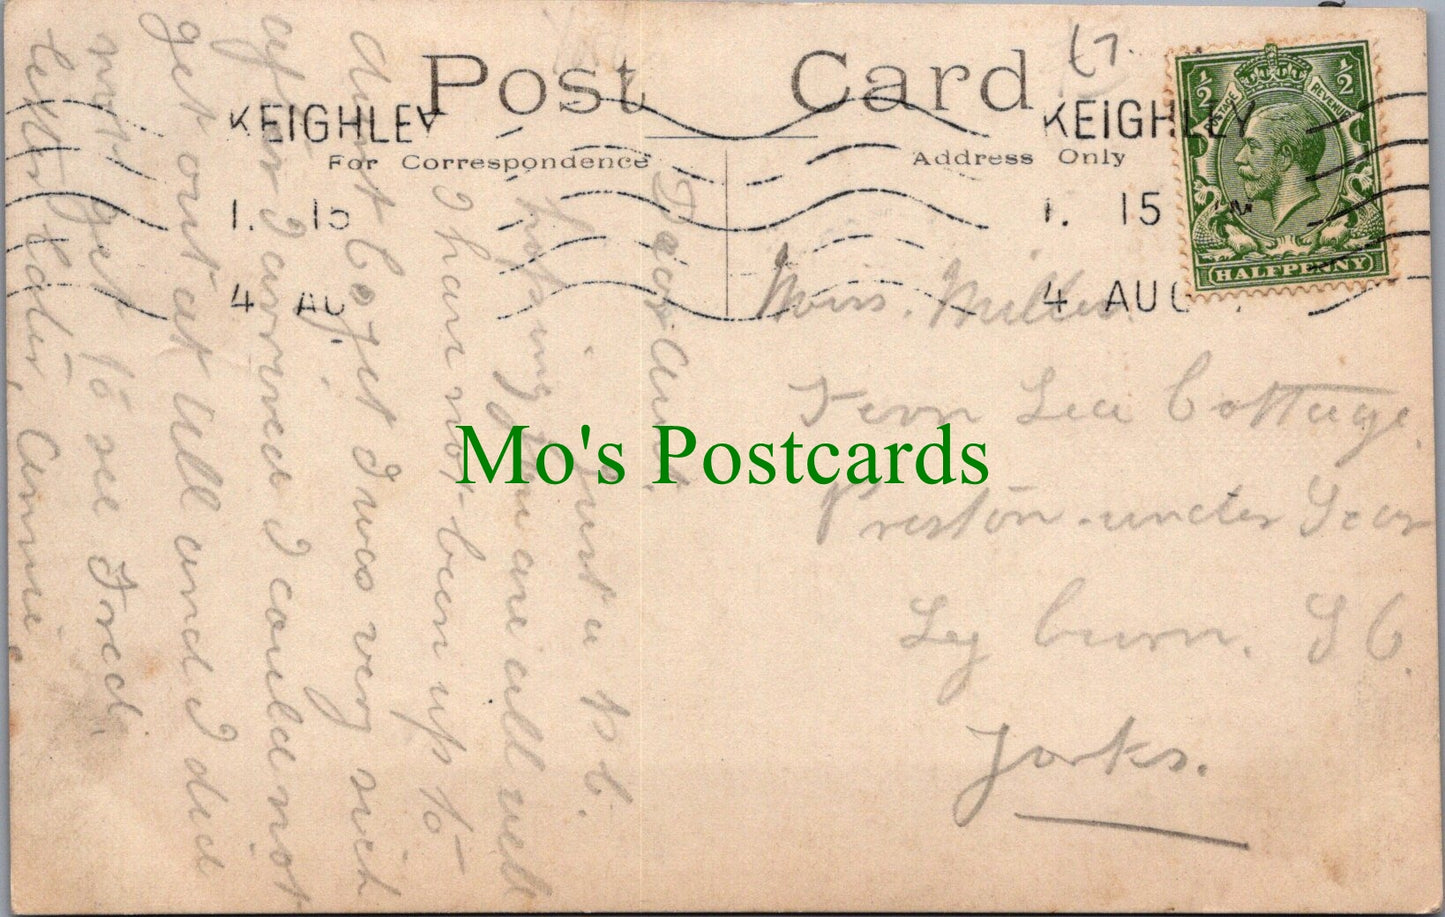 Post Card
For Correspondence
Address Only
KEIGHLEY
1. 15
4 AU
KEIGHLEY
1. 15
4 AUG
1/2 1/2
POSTAGE REVENUE
HALFPENNY
Dear Aunt.
Just a P C.
hoping you are all well
I have not been up to
Aunt
I was very sick
after I arrived I could not
get out at all and I did
not get to see Fred.
letter later, Annie
Miss. Miller.
Fern Lea Cottage.
Preston-under Scar
Leyburn. S C
Yorks.
Mo's Postcards